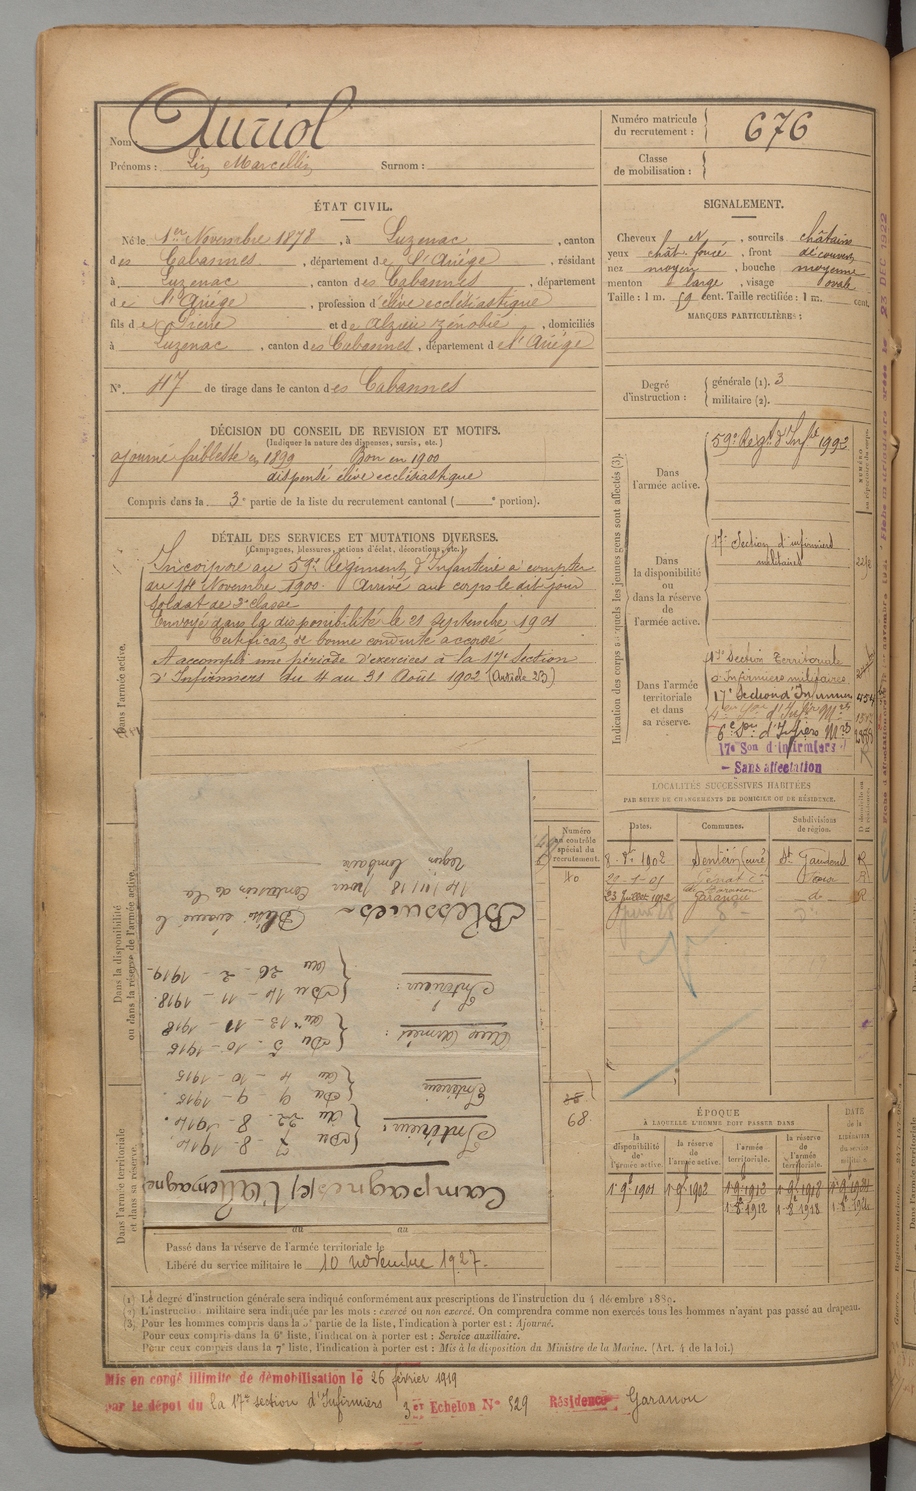 Nom : Auriol
Prénoms : Marcellin Surnom :
Numéro matricule du recrutement : 676
Classe de mobilisation :
ÉTAT CIVIL.
Né le 1er Novembre 1878, à Luzenac, canton
des Cabannes, département de l'Ariège, résidant
à Luzenac, canton des Cabannes, département
de l'Ariège, profession d'élève ecclésiastique
fils de Pierre et de Alzieu Zénobie, domiciliés
à Luzenac, canton des Cabannes, département de l'Ariège
N° 47 de tirage dans le canton des Cabannes
DÉCISION DU CONSEIL DE REVISION ET MOTIFS.
(Indiquer la nature des dispenses, sursis, etc.)
ajourné faiblesse en 1899 Bon en 1900
dispensé élève ecclésiastique
Compris dans la 3e partie de la liste du recrutement cantonal ( e portion).
DÉTAIL DES SERVICES ET MUTATIONS DIVERSES.
(Campagnes, blessures, actions d'éclat, décorations, etc.)
Incorporé au 59e Régiment d'Infanterie à compter
du 14 Novembre 1900. Arrivé au corps le dit jour
Soldat de 2e classe
Envoyé dans la disponibilité le 21 Septembre 1901
Certificat de bonne conduite accordé
A accompli une période d'exercices à la 17e Section
d'Infirmiers du 4 au 31 Août 1902 (Article 23)
Dans l'armée active.
Dans la disponibilité
ou dans la réserve de l'armée active.
Dans l'armée territoriale
et dans sa réserve.
Campagnes c/ l'Allemagne
Intérieur : Du 7 - 8 - 1914
au 22 - 8 - 1914.
Intérieur Du 9 - 9 - 1915.
au 4 - 10 - 1915
Aux Armées : Du 5 - 10 - 1915
au 13 - 11 - 1918
Intérieur : Du 14 - 11 - 1918.
au 26 - 2 - 1919.
Blessures ~ évacué le
14/11/18 pour Contusion de la
région lombaire
Numéro au contrôle spécial du recrutement.
80
68.
au au
Passé dans la réserve de l'armée territoriale le
Libéré du service militaire le 10 novembre 1927.
SIGNALEMENT.
Cheveux N, sourcils châtains
yeux chât. foncé, front découvert
nez moyen, bouche moyenne
menton large, visage ovale
Taille : 1 m. 59 cent. Taille rectifiée : 1 m. cent.
MARQUES PARTICULIÈRES :
Degré d'instruction : générale (1). 3
militaire (2).
Indication des corps auxquels les jeunes gens sont affectés (3).
Dans l'armée active.
59e Régt d'Infie 1992
Dans la disponibilité ou dans la réserve de l'armée active.
17e Section d'infirmiers
militaires
Dans l'armée territoriale et dans sa réserve.
Section Territoriale
d'Infirmiers militaires
17e Section d'Infirmiers 454
6e Son d'Infirs Mres
17e Son d'infirmiers
- Sans affectation
LOCALITÉS SUCCESSIVES HABITÉES
PAR SUITE DE CHANGEMENTS DE DOMICILE OU DE RÉSIDENCE.
Dates. Communes. Subdivisions de région.
1902 Sentein (curé) St Gaudens R
23 Juillet 1912 Garanou do R
ÉPOQUE
À LAQUELLE L'HOMME DOIT PASSER DANS
DATE de la LIBÉRATION du service militaire.
la disponibilité de l'armée active. la réserve de l'armée active. l'armée territoriale. la réserve de l'armée territoriale.
1 9e 1901 1 9e 1902 1 9e 1912 1 9e 1918
1 8e 1912 1 8e 1918
(1) Le degré d'instruction générale sera indiqué conformément aux prescriptions de l'instruction du 4 décembre 1889.
(2) L'instruction militaire sera indiquée par les mots : exercé ou non exercé. On comprendra comme non exercés tous les hommes n'ayant pas passé au drapeau.
(3) Pour les hommes compris dans la 5e partie de la liste, l'indication à porter est : Ajourné.
Pour ceux compris dans la 6e liste, l'indication à porter est : Service auxiliaire.
Pour ceux compris dans la 7e liste, l'indication à porter est : Mis à la disposition du Ministre de la Marine. (Art. 4 de la loi.)
Mis en congé illimité de démobilisation le 26 février 1919
par le dépôt du la 17e section d'Infirmiers 3er Echelon N° 529 Résidence Garanou
23 DEC 1922